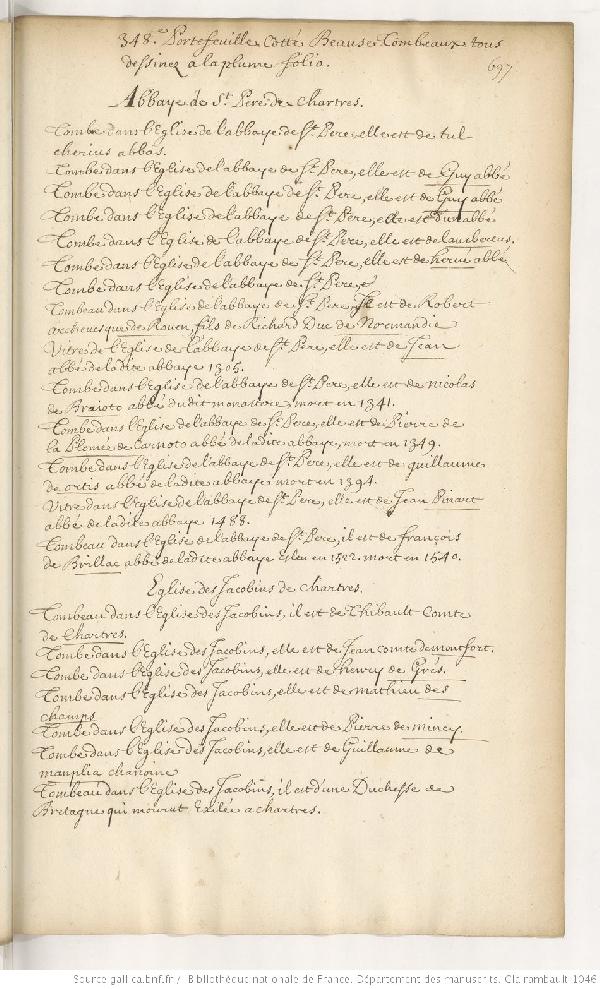 348.e Portefeuille Cotté Beausse Tombeaux tous
dessinez a la plume folio.
697
Abbaye de St. Pere de Chartres.
Tombe dans l'Eglise de l'abbaye de St. Pere, elle est de tul-
cherius abbas.
Tombe dans l'Eglise de l'abbaye de St. Pere, elle est de Guy abbé
Tombe dans l'Eglise de l'abbaye de St. Pere, elle est de Guy abbé
Tombe dans l'Eglise de l'abbaye de St. Pere, elle est d'un abbé
Tombe dans l'Eglise de l'abbaye de St. Pere, elle est de
Tombe dans l'Eglise de l'abbaye de St. Pere, elle est de hervé abbé
Tombe dans l'Eglise de l'abbaye de St. Pere,
Tombeau dans l'Eglise de l'abbaye de St. Pere, Il est de Robert
archevesque de Rouen, fils de Richard Duc de Normandie
Vitre de l'Eglise de l'abbaye de St. Pere, elle est de Jean
abbé de ladite abbaye 1305.
Tombe dans l'Eglise de l'abbaye de St. Pere, elle est de nicolas
de abbé dudit monastere, mort en 1341.
Tombe dans l'Eglise de l'abbaye de St. Pere, elle est de Pierre de
la Plomée de Carnoto abbé de ladite abbaye, mort en 1349.
Tombe dans l'Eglise de l'abbaye de St. Pere, elle est de guillaume
de abbé de ladite abbaye mort en 1394.
Vitre dans l'Eglise de l'abbaye de St. Pere, elle est de Jean Pinart
abbé de ladite abbaye 1488.
Tombeau dans l'Eglise de l'abbaye de St. Pere, il est de françois
de Brillac abbé de ladite abbaye Esleu en mort en 1540.
Eglise des Jacobins de chartres.
Tombeau dans l'Eglise des Jacobins, il est de Thibault Comte
de Chartres.
Tombe dans l'Eglise des Jacobins, elle est de Jean comte de montfort.
Tombe dans l'Eglise des Jacobins, elle est de henry de Grés.
Tombe dans l'Eglise des Jacobins, elle est de mathieu des
champs
Tombe dans l'Eglise des Jacobins, elle est de Pierre de mincy.
Tombe dans l'Eglise des Jacobins, elle est de Guillaume de
manplia chanoine
Tombeau dans l'Eglise des Jacobins, il est d'une Duchesse de
Bretagne qui mourut Exilée a chartres.
Source gallica.bnf.fr / Bibliothèque nationale de France. Département des manuscrits. Clairambault 1046